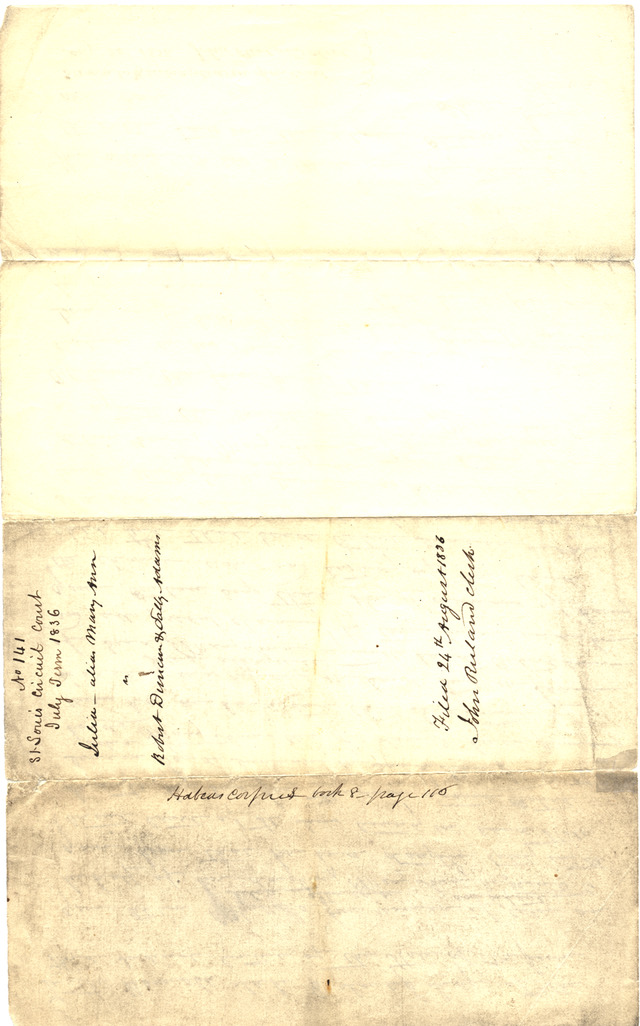 No 141
St Louis Circuit Court
July Term 1836
Julia - alias Mary Ann
vs
Robert Duncan & Sally Adams
Filed 24th August 1836
John Ruland Clerk.
Habeas Corpus book 8 - page 116